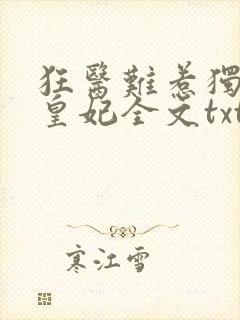 狂醫難惹獨
皇妃全文txt
寒江雪